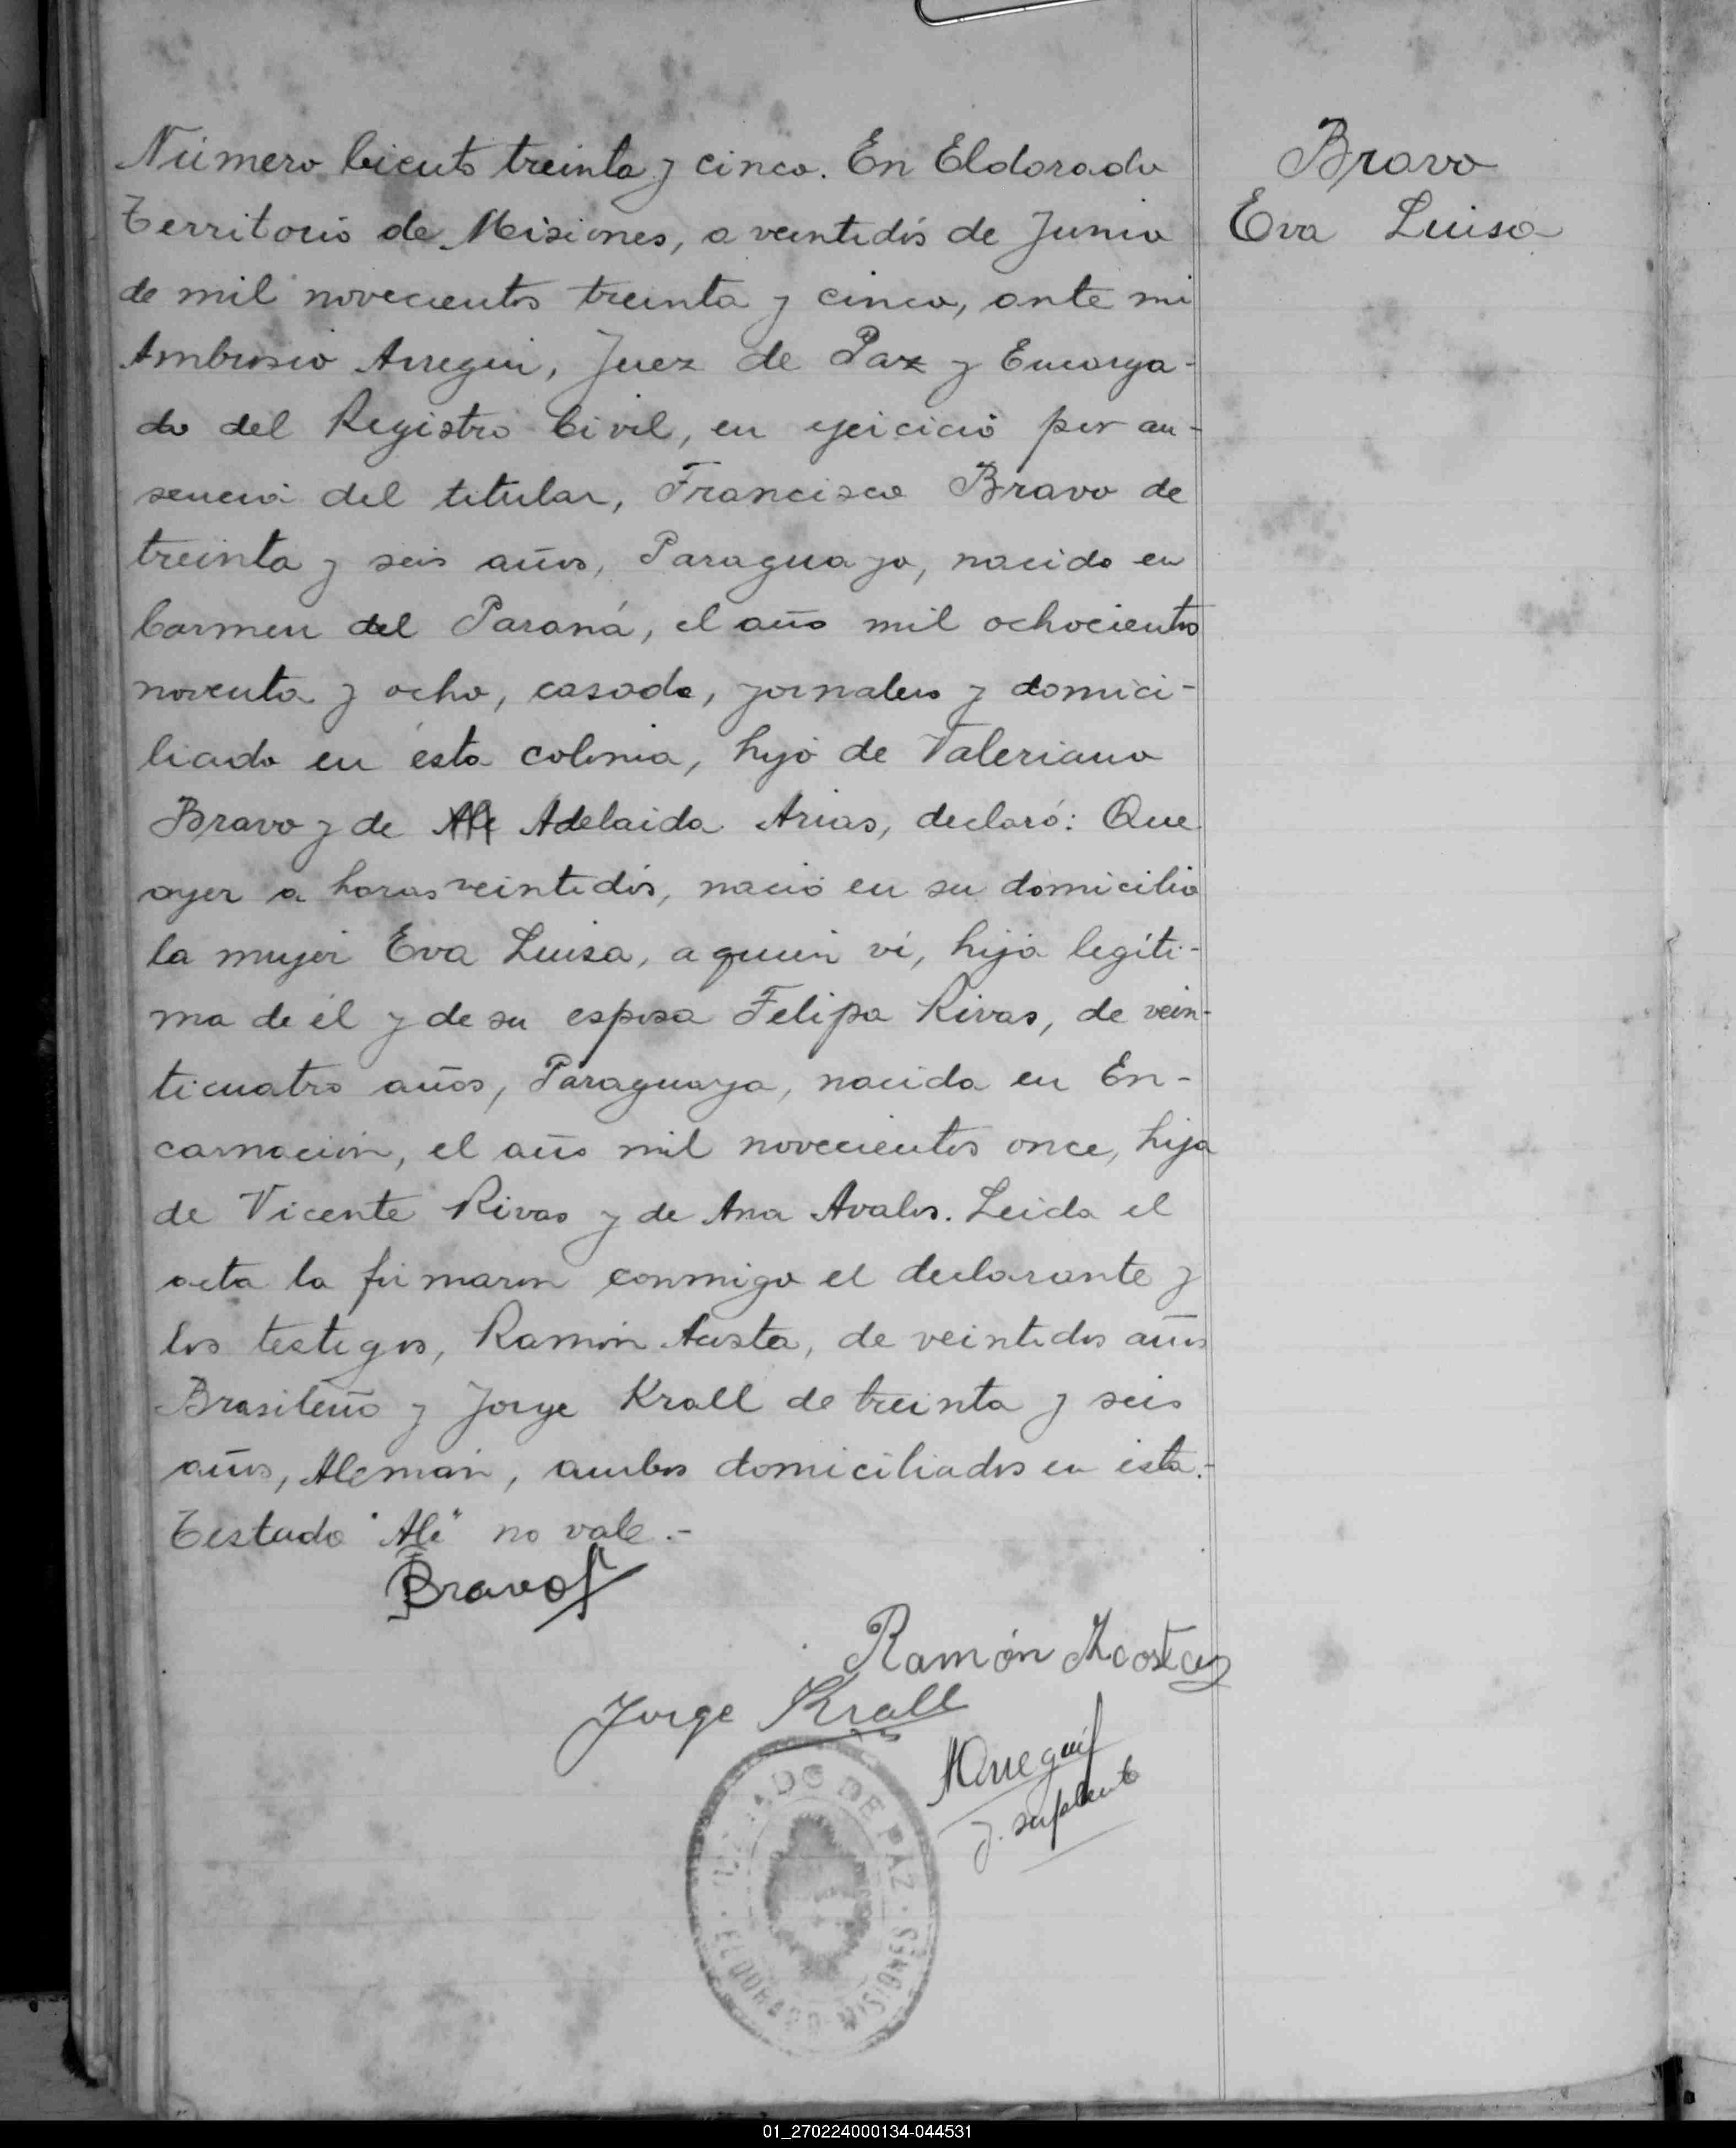 Número Ciento treinta y cinco. En Eldorado
Territorio de Misiones, a veintidós de Junio
de mil novecientos treinta y cinco, ante mi
Ambrosio Arregui, Juez de Paz y Encarga-
do del Registro Civil, en ejercicio por au-
sencia del titular, Francisco Bravo de
treinta y seis años, Paraguayo, nacido en
Carmen del Paraná, el año mil ochocientos
noventa y ocho, casado, jornalero y domici-
liado en ésta colonia, hijo de Valeriano
Bravo y de Ale Adelaida Arias, declaró: Que
ayer a horas veintidós, nació en su domicilio
la mujer Eva Luisa, a quien ví, hija legíti-
ma de él y de su esposa Felipa Rivas, de vein-
ticuatro años, Paraguaya, nacida en En-
carnación, el año mil novecientos once, hija
de Vicente Rivas y de Ana Avalos. Leida el
acta la firmaron conmigo el declarante y
los testigos, Ramón Acosta, de veintidos años
Brasileño y Jorge Krall de treinta y seis
años, Alemán, ambos domiciliados en ésta.-
Testado "Ale" no vale.-
Bravo
Ramón Acosta
Jorge Krall
AArregui
J. suplente
JUZGADO DE PAZ
ELDORADO MISIONES
Bravo
Eva Luisa
01_270224000134-044531